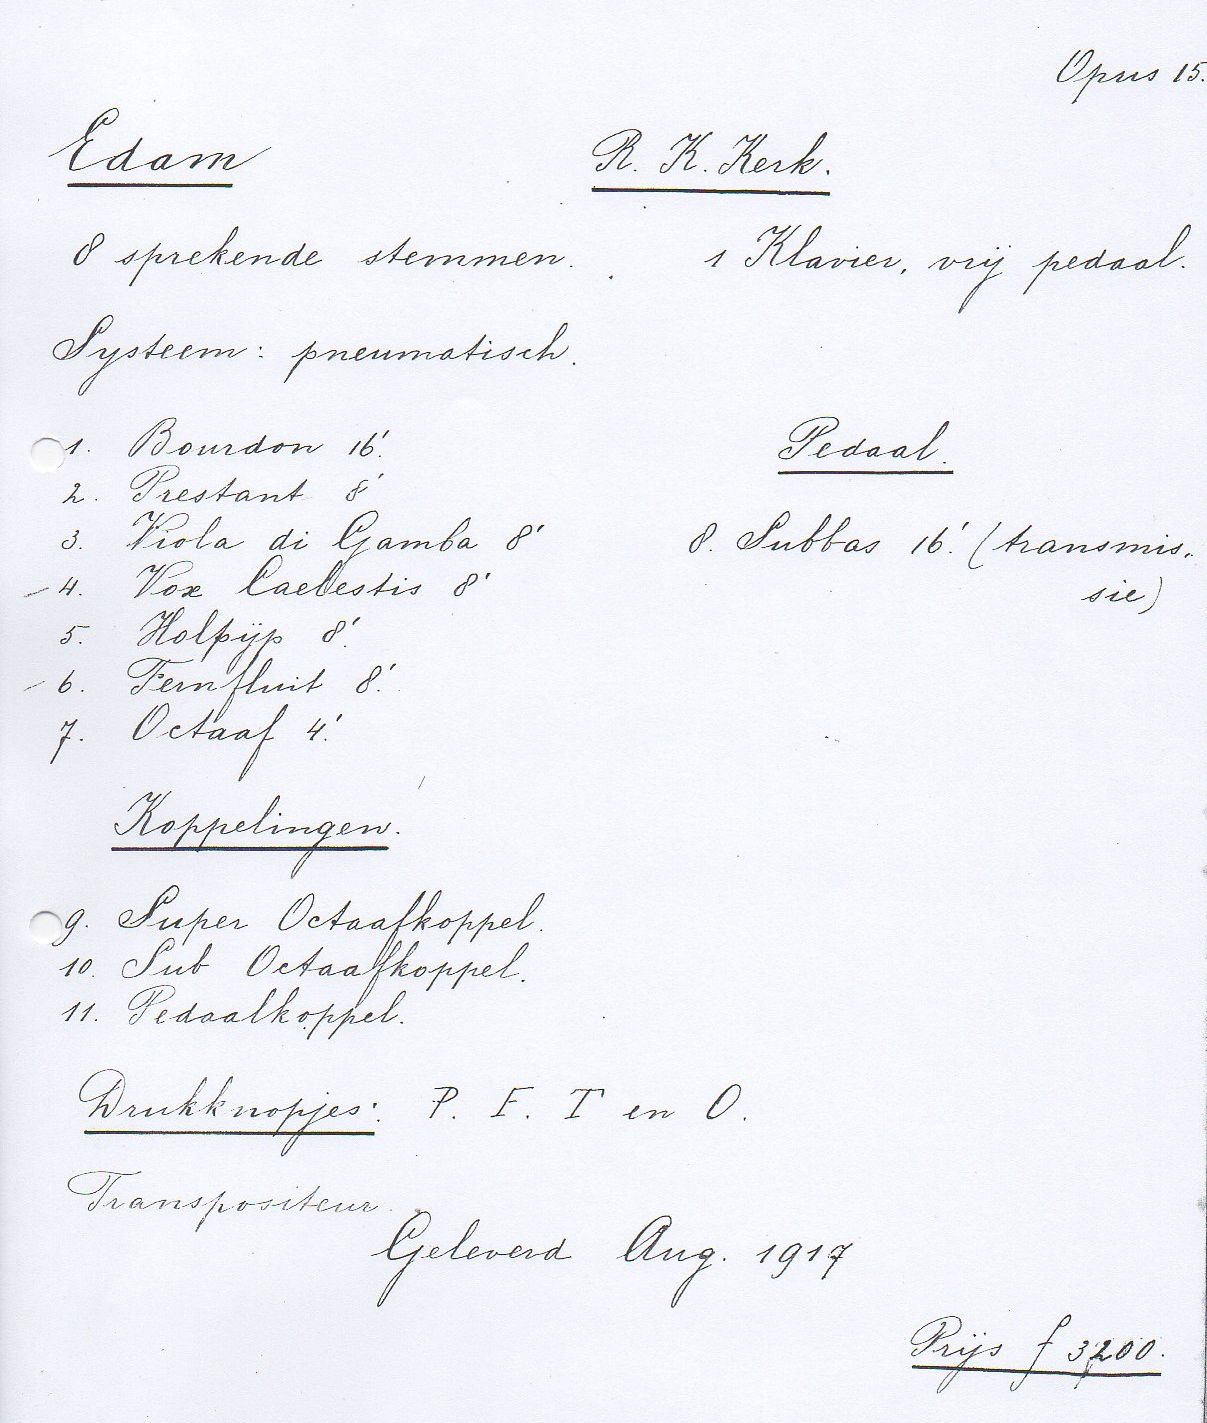 Opus 15.
Edam R. K. Kerk.
8 sprekende stemmen. 1 Klavier, vrij pedaal.
Systeem: pneumatisch.
1. Bourdon 16'.
2. Prestant 8'
3. Viola di Gamba 8'
4. Vox Caelestis 8'
5. Holpijp 8'.
6. Fernfluit 8'.
7. Octaaf 4'.
Pedaal.
8. Subbas 16'. (transmis-
sie)
Koppelingen.
9. Super Octaafkoppel.
10. Sub Octaafkoppel.
11. Pedaalkoppel.
Drukknopjes: P. F. T en O.
Transpositeur.
Geleverd Aug. 1917
Prijs f 3200.